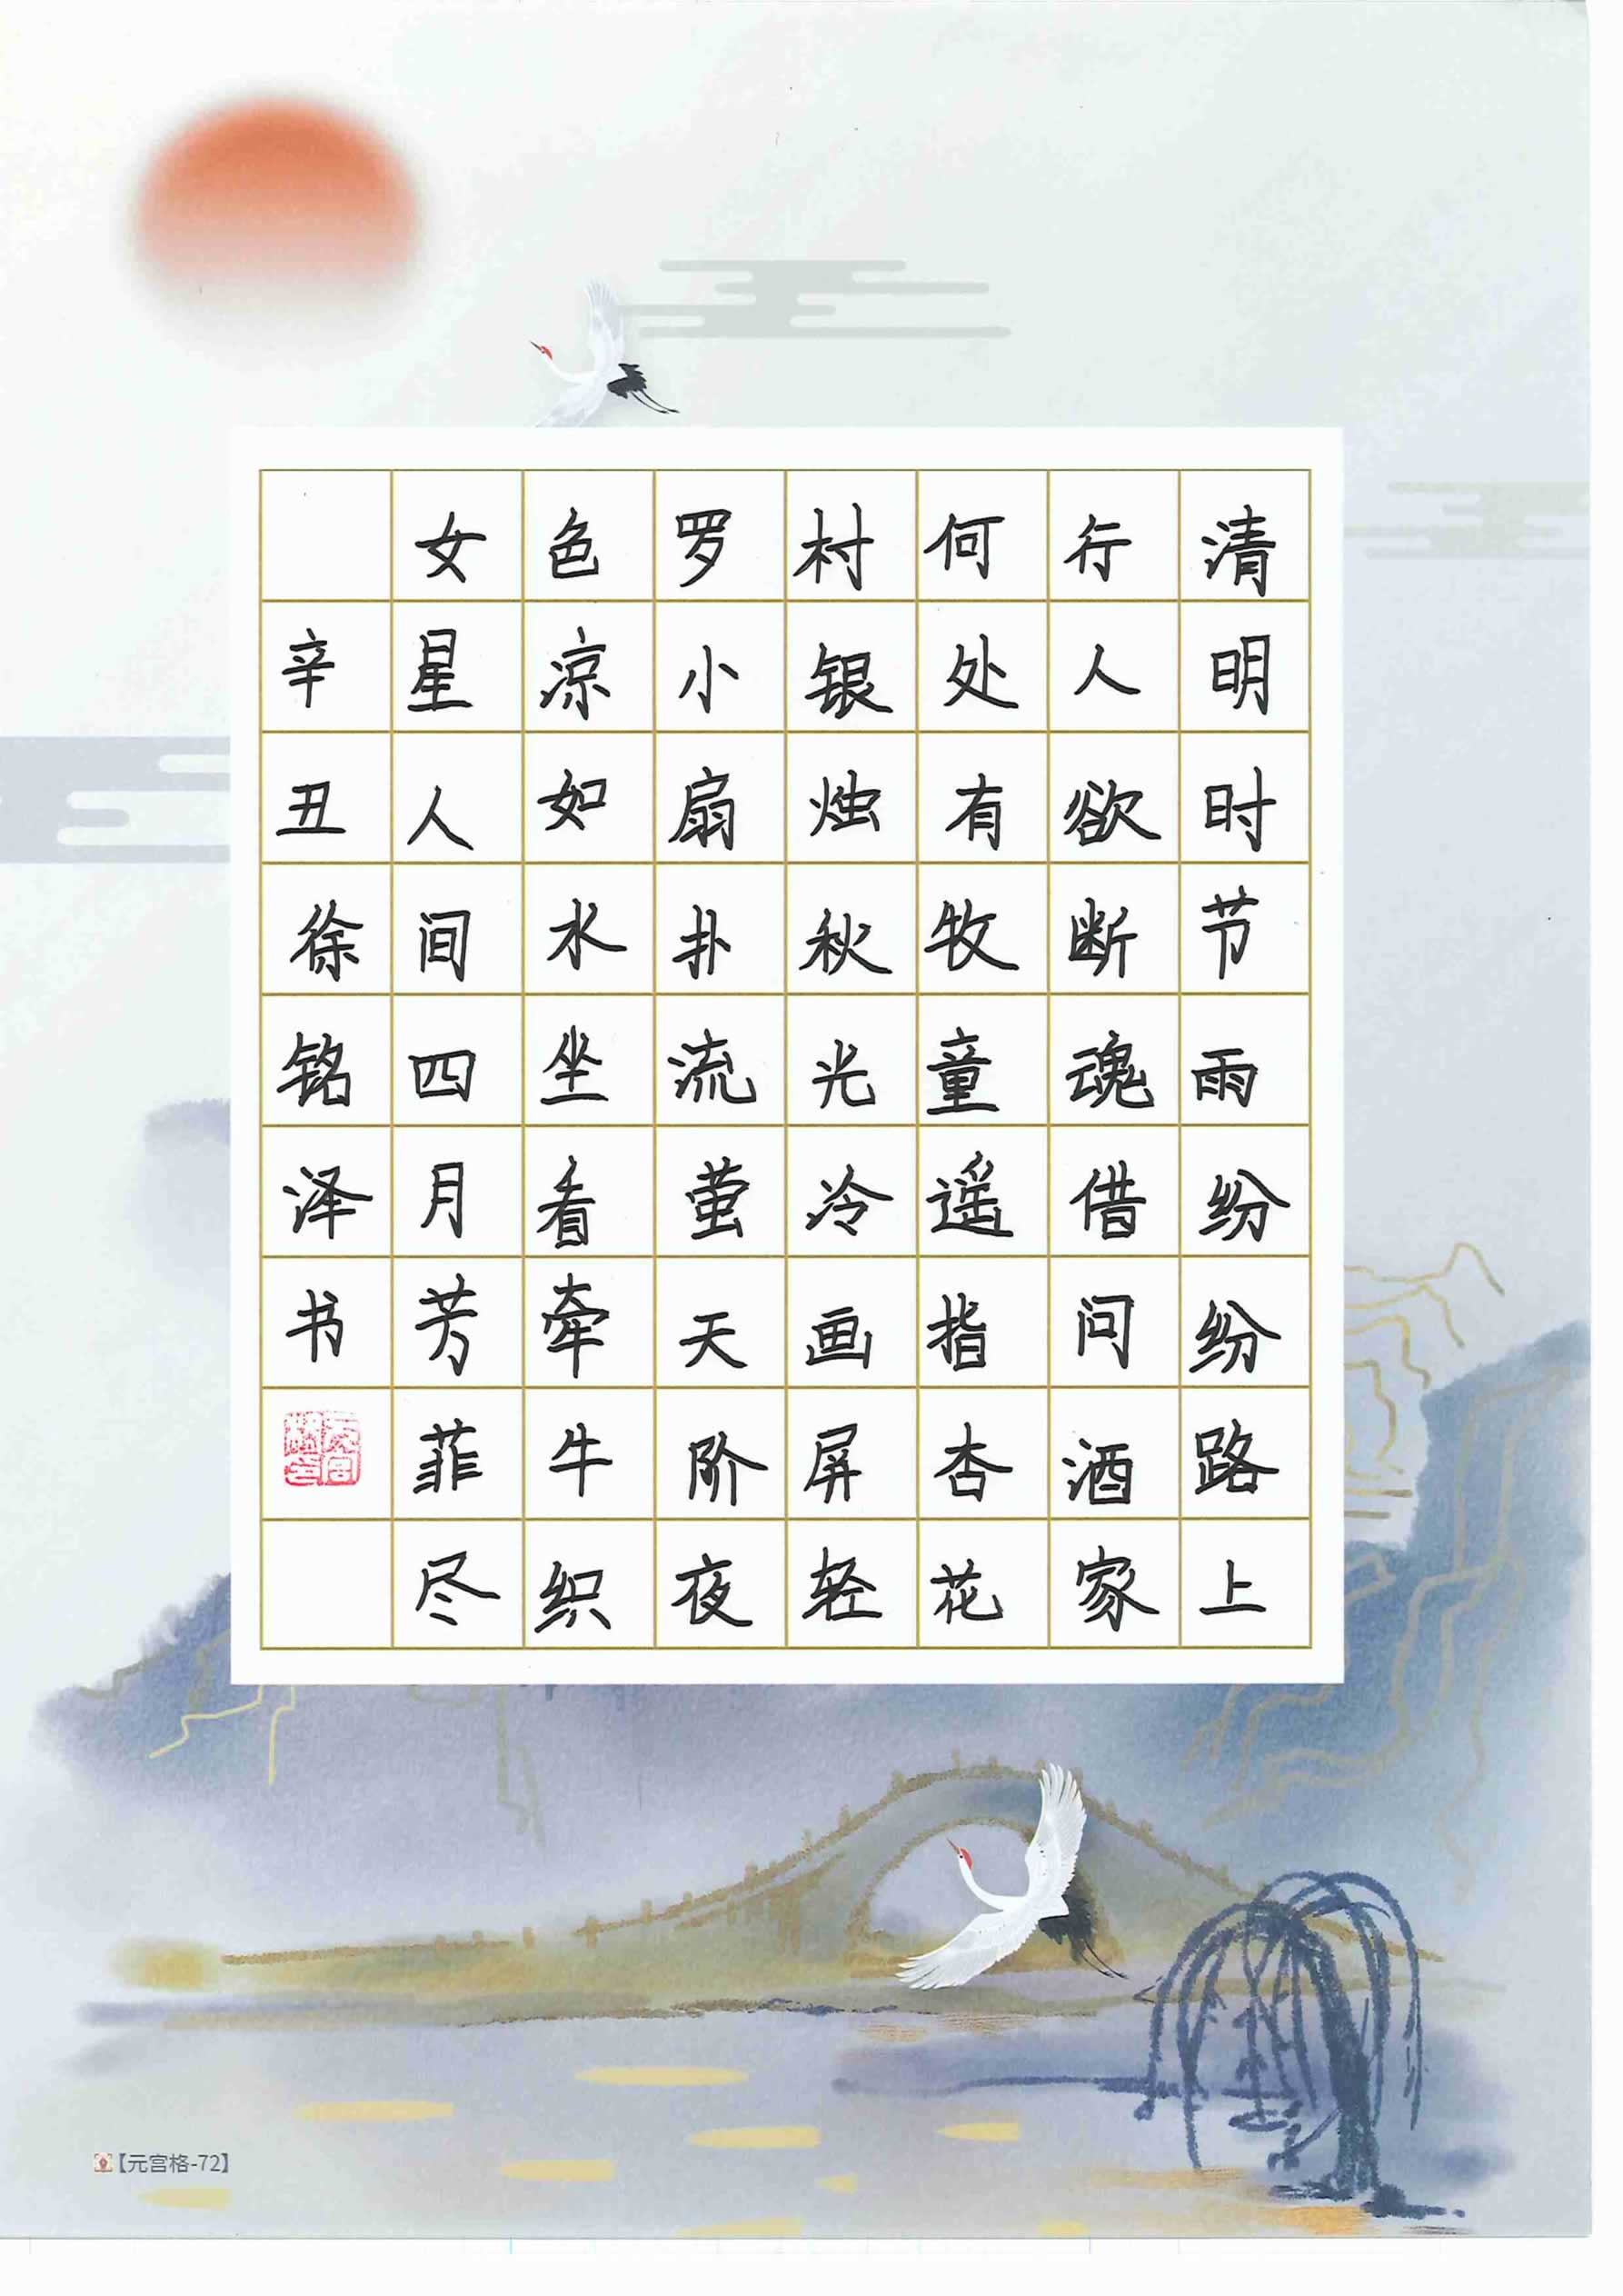 清明时节雨纷纷路上
行人欲断魂借问酒家
何处有牧童遥指杏花
村银烛秋光冷画屏轻
罗小扇扑流萤天阶夜
色凉如水坐看牵牛织
女星人间四月芳菲尽
辛丑徐铭泽书
【元宫格-72】